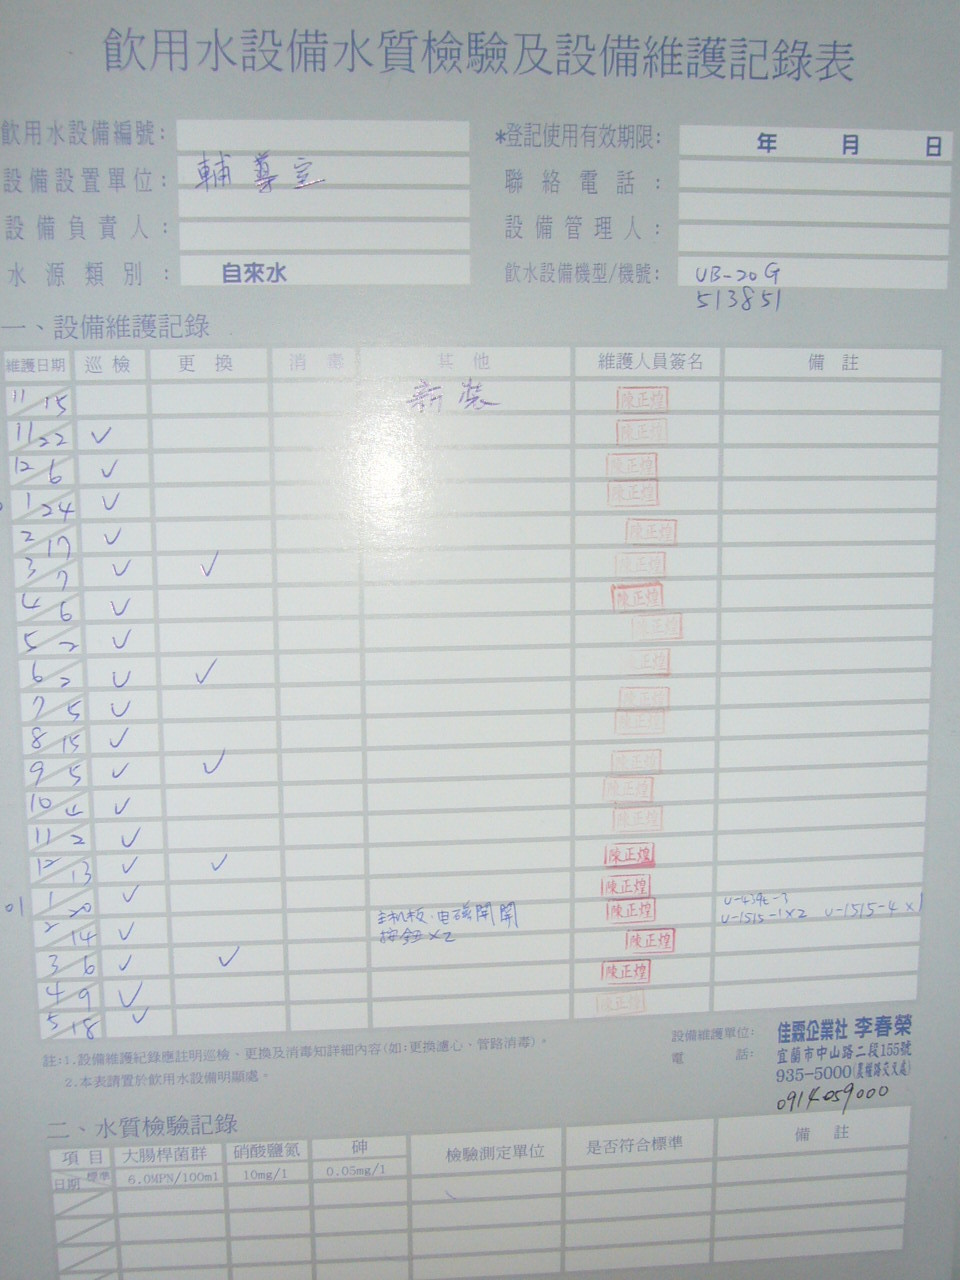 飲用水設備水質檢驗及設備維護記錄表
飲用水設備編號:
*登記使用有效期限: 年 月 日
設備設置單位: 輔導室
聯絡電話:
設備負責人:
設備管理人:
水源類別: 自來水
飲水設備機型/機號: UB-20G
513851
一、設備維護記錄
維護日期 巡檢 更換 消毒 其他 維護人員簽名 備註
11/15 新裝 陳正煌
11/22 ✓ 陳正煌
12/6 ✓ 陳正煌
1/24 ✓ 陳正煌
2/17 ✓ 陳正煌
3/7 ✓ ✓ 陳正煌
4/6 ✓ 陳正煌
5/2 ✓ 陳正煌
6/2 ✓ ✓ 陳正煌
7/5 ✓ 陳正煌
8/15 ✓ 陳正煌
9/5 ✓ ✓ 陳正煌
10/4 ✓ 陳正煌
11/2 ✓ 陳正煌
12/13 ✓ ✓ 陳正煌
01 1/20 ✓ 陳正煌
2/14 ✓ 主机板.电磁開關 陳正煌
按鈕×2 U-1515-1×2 U-1515-4×1
3/6 ✓ ✓ 陳正煌
4/9 ✓ 陳正煌
5/18 ✓ 陳正煌
註:1.設備維護紀錄應註明巡檢、更換及消毒知詳細內容(如:更換濾心、管路消毒)。
2.本表請置於飲用水設備明顯處。
設備維護單位: 佳霖企業社 李春榮
宜蘭市中山路二段155號
電話: 935-5000
0914059000
二、水質檢驗記錄
項目 大腸桿菌群 硝酸鹽氮 砷 檢驗測定單位 是否符合標準 備註
日期 標準 6.0MPN/100ml 10mg/1 0.05mg/1